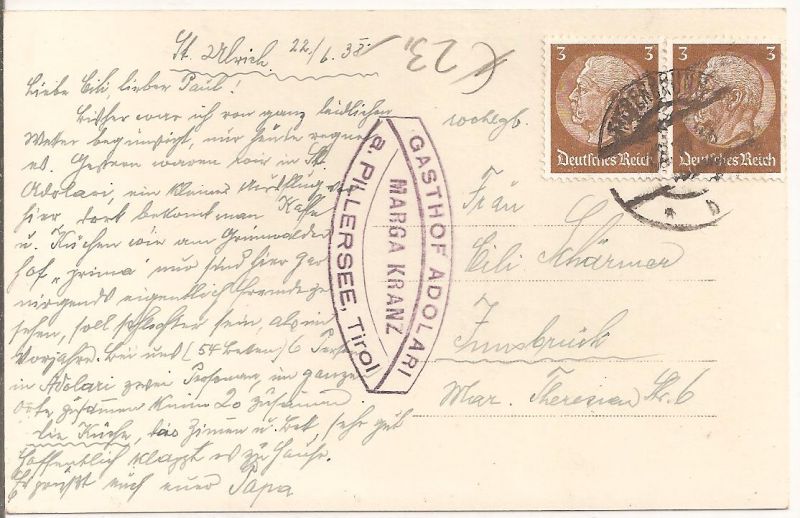 St. Ulrich 22/6. 38.
Liebe Cili, lieber Paul!
Bisher war ich von ganz leidlichen
Wetter begünstigt, nur heute regnet
es. Gestern waren wir in St.
Adolari, ein kleiner Ausflug von
hier, dort bekomt man Kafe
u. Kuchen wie am Grünwalder
hof "prima" nur sind hier gar
nirgends eigentlich Fremde ge
sehen, soll schlechter sein, als im
Vorjahre. Bei uns (54 Betten) 6 Perso
in Adolari zwei Personen, im ganzen
Orte zusammen keine 20 zusamm
die Küche, das Zimen u. Bet, sehr gut
Hoffentlich klappt es zu Hause.
Es grüßt euch euer Papa
23.
GASTHOF ADOLARI
MARGA KRANZ
a. PILLERSEE, Tirol
3 3
Deutsches Reich Deutsches Reich
b
wohlgb.
Frau
Cili Schärmer
Innsbruck
Mar. Theresien Str. 6